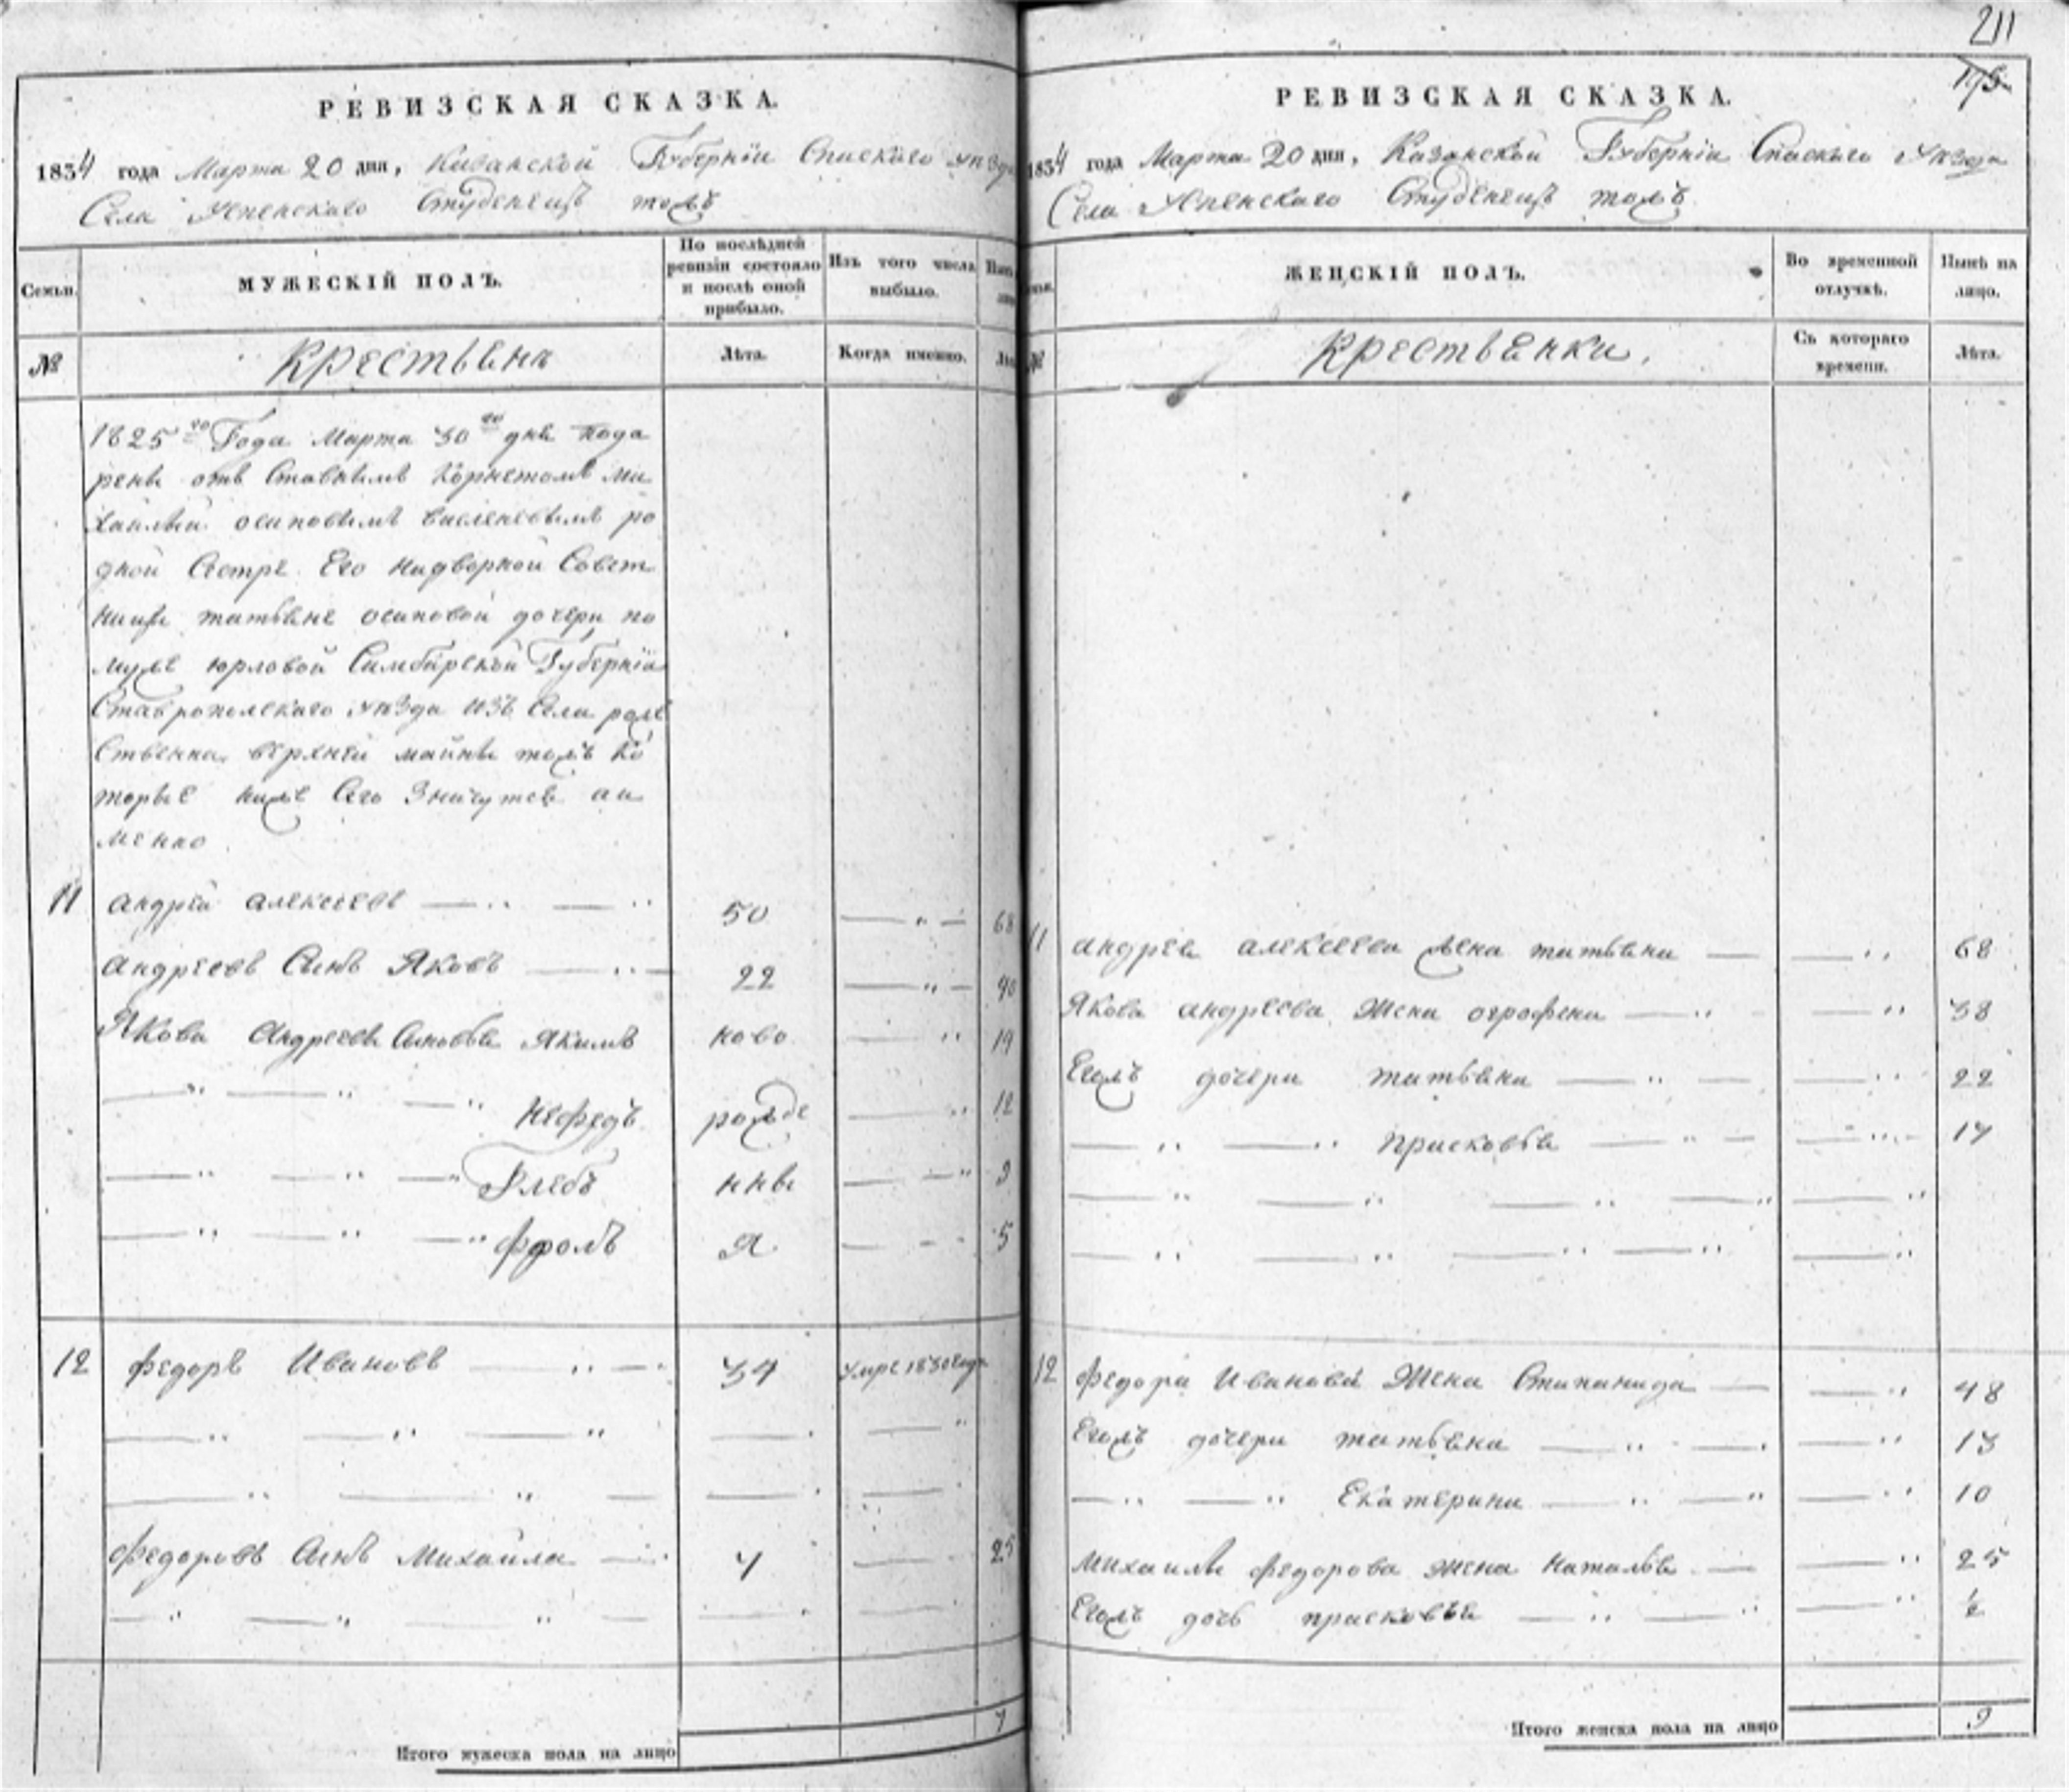 211
195
РЕВИЗСКАЯ СКАЗКА.
1834 года Марта 20 дня, Казанской Губерніи Спаскаго уѣзда
Села Успенскаго Студенецъ тожъ
Семьи.
МУЖЕСКІЙ ПОЛЪ.
По послѣдней ревизіи состояло и послѣ оной прибыло.
Изъ того числа выбыло.
№
Крестьянъ
Лѣта.
Когда именно.
1825го Года Марта 30го дня пода
рены отъ Ставнымъ Корнетомъ Ми
хайлой осиповымъ родной
Сестре Его надворной Совет
ницы татьяне осиповой дочери по
муже юрловой Симбирской Губерніи
Ставропольскаго уѣзда изъ Села рож
ствена верхней майны тожъ ко
торые ниже Сего Значутся аи
менно
11 андрей алексеевъ 50 68
андреевъ Сынъ Яковъ 22 40
Якова Андреева Сыновья Якимъ ново 19
Нефедъ рожде 12
Глебъ нны 9
Ффролъ я 5
12 Федоръ Ивановъ 34 умре 1830 года
Федоровъ Сынъ Михайла 7 25
7
Итого мужеска пола на лицо
РЕВИЗСКАЯ СКАЗКА.
1834 года Марта 20 дня, Казанской Губерніи Спаскаго Уѣзда
Села Успенскаго Студенецъ тожъ
ЖЕНСКІЙ ПОЛЪ.
Во временной отлучкѣ.
Нынѣ на лицо.
№
Крестьянки.
Съ котораго времени.
Лѣта.
11 андрея алексеева жена татьяна 68
Якова андреева Жена огрофена 38
Егожъ дочери татьяна 22
прасковья 17
12 Федора Иванова Жена Стипанида 48
Егожъ дочери татьяна 13
Екатерина 10
михаилы федорова жена наталья 25
Егожъ дочь прасковья ½
9
Итого женска пола на лицо